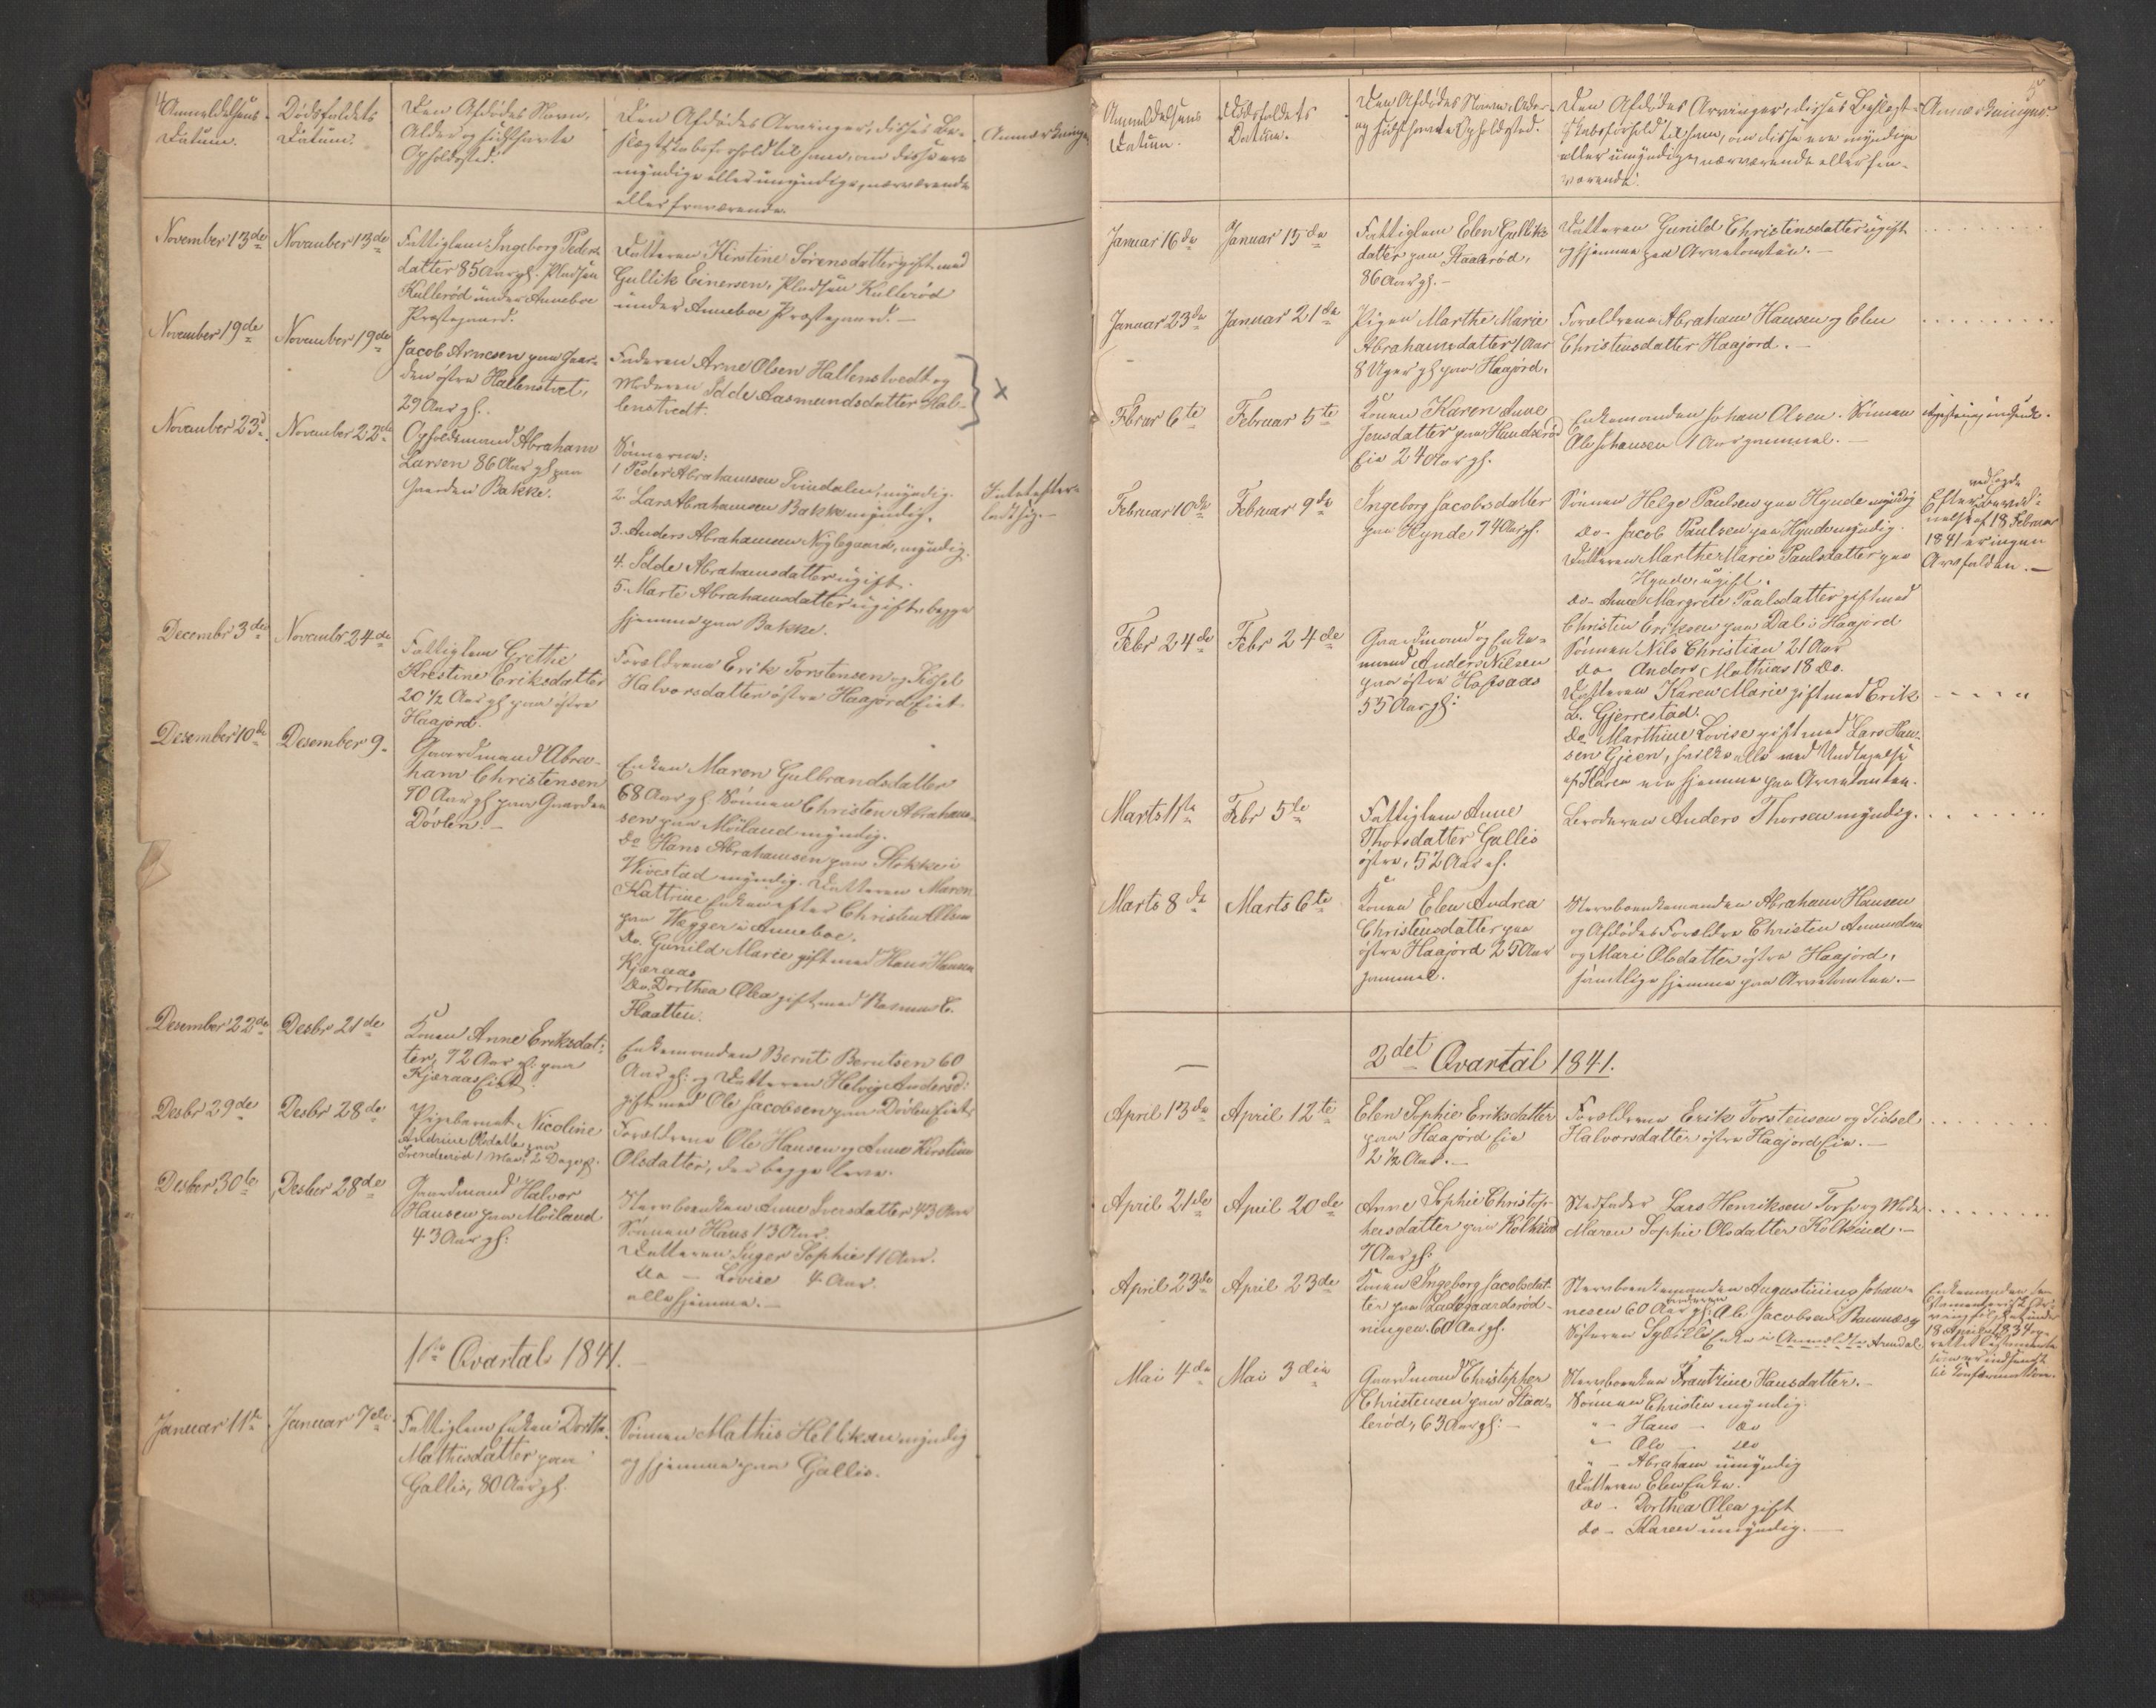 4
Anmeldelsens
Datum.
Dødsfaldets
Datum.
Den Afdødes Navn,
Alder og sidsthavte
Opholdssted.
Den Afdødes Arvinger, disses Be-
slægtskabsforhold til ham, om disse ere
myndige eller umyndige, nærværende
eller fraværende.
Anmærkninger
November 13de
November 13de
Fattiglem: Ingeborg Peders-
datter 85 Aar gl. Pladsen
Kullerød under Anneboe
Præstegaard.
Datteren Kirstine Sørensdatter gift med
Gullik Einersen, Pladsen Kullerød
under Anneboe Præstegaard.
November 19de
November 19de
Jacob Arnesen paa Gaar-
den østre Hallenstvet,
29 Aar gl.
Faderen Arne Olsen Hallenstvedt og
Moderen Idde Aasmundsdatter Hal-
lenstvedt.
x
November 23d
November 22de
Opholdsmand Abraham
Larsen 86 Aar gl paa
Gaarden Bakke.
Sønnerne:
1 Peder Abrahamsen Lindalen, myndig.
2. Lars Abrahamsen Bakke myndig.
3. Anders Abrahamsen Nøglegaard, myndig.
4. Idde Abrahamsdatter ugift.
5. Marte Abrahamsdatter ugift begge
hjemme paa Bakke.
Intet efter-
ladt sig.-
Decembr 3die
Novembr 24de
Fattiglem Grethe
Krestine Eriksdatter
20 1/2 Aar gl paa østre
Haajord.
Forældrene Erik Torstensen og Sidsel
Halvorsdatter østre Haajord Eiet.
Desember 10de
Desember 9-
Gaardmand Abra-
ham Christensen
70 Aar gl paa Gaarden
Dövlen.-
Enken Maren Gulbrandsdatter
68 Aar gl Sønnen Christen Abraham-
sen paa Möiland myndig.
Do Hans Abrahamsen paa Stokke i
Wivestad myndig. Datteren Maren
Kattrine Enken efter Christen Olsen
paa Wegger i Anneboe.
Do. Gunild Marie gift med Hans Hansen
Kjæraas
Do. Dorthea Olea gift med Rasmus C.
Flaatten.
Desember 22de
Desbr 21de
Konen Anne Eriksdat-
ter, 72 Aar gl: paa
Kjæraas Eiet.
Enkemanden Bernt Berntsen 60
Aar gl: og Datteren Helvig Andersd:
gift med Ole Jacobsen paa Dövlen Eiet.
Desbr 29de
Desbr 28de
Pigebarnet Nicoline
Andrine Olsdatter paa
Trenderød 1 Maa: 2 Dage gl.
Forældrene Ole Hansen og Anne Kirstine
Olsdatter, der begge leve.
Desber 30te
Desber 28de
Gaardmand Halvor
Hansen paa Möiland
43 Aar gl:
Stervboenken Anne Iversdatter 43 Aar
Sønnen Hans 13 Aar.
Datteren Inger Sophie 11 Aar.
Do - Lovise 4 Aar.
alle hjemme.-
1ste Qvartal 1841.
Januar 11te
Januar 7de
Fattiglem Enken Dorthe
Mathisdatter paa
Gallis, 80 Aar gl.
Sønnen Mathis Helliksen myndig
og hjemme paa Gallis.
5
Anmeldelsens
Datum.
Dödsfaldets
Datum.
Den Afdödes Navn, Alder
og sidsthavte Opholdssted.
Den Afdödes Arvinger, disses Beslægt-
skabsforhold til ham, om disse ere myndige
eller umyndige, nærværende eller fra-
værende.
Anmærkninger.
Januar 16de
Januar 15de
Fattiglem Elen Gulliks-
datter paa Staalerød,
86 Aar gl.-
Datteren Gunild Christensdatter ugift
og hjemme paa Arvetomten.-
Januar 23de
Januar 21de
Pigen Marthe Marie
Abrahamsdatter 1 Aar
8 Uger gl paa Haajord.
Forældrene Abraham Hansen og Elen
Christensdatter Haajord.-
Fbruar 6te
Februar 5te
Konen Karen Anne
Jensdatter paa Hundserød
Eie 24 Aar gl.
Enkemanden Johan Olsen. Sønnen
Ole Johansen 1 Aar gammel.-
Februar 10de
Februar 9de
Ingeborg Jacobsdatter
paa Hynde 74 Aar gl.
Sönnen Helge Paulsen paa Hynde myndig
Do- Jacob Paulsen paa Hynde myndig.
Datteren Marthe Marie Paulsdatter paa
Hynde, ugift.
Do- Anne Margrete Paulsdatter gift med
Christen Eriksen paa Dal i Haajord
vedlagde
Efter Beretn-
nelse af 18 Februar
1841 er ingen
Arvefalden.-
Febr 24de
Febr 24de
Gaardmand og Enke-
mand Anders Nilsen
paa østre Hafsaas
55 Aar gl:
Sönnen Nils Christian 21 Aar
Do Anders Mathias 18 do.
Datteren Karen Marie gift med Erik
L. Gjerrestad.
Do Marthine Lovise gift med Lars Han-
sen Gjeen, hvilke alle med Undtagelse
af Karen ere hjemme paa Arvetomten.
Marts 1ste
Febr 5te
Fattiglem Anne
Thorsdatter Gallis
østre, 52 Aar gl.
Broderen Anders Thorsen myndig.
Marts 8de
Marts 6te
Konen Elen Andrea
Christensdatter paa
østre Haajord 25 Aar
gammel.
Stervboenkemanden Abraham Hansen
og Afdödes Forældre Christen Amundsen
og Mari Olsdatter østre Haajord,
samtlige hjemme paa Arvetomten.-
2det Qvartal 1841.
April 13de
April 12te
Elen Sophie Eriksdatter
paa Haajord Eie
2 1/2 Aar.-
Forældrene Erik Torstensen og Sidsel
Halvorsdatter østre Haajord Eie.-
April 21de
April 20de
Anne Sophie Christof-
hersdatter paa Kolkind
7 Aar gl:
Stedfader Lars Henriksen Torp og Moder
Maren Sophie Olsdatter Kolkind.-
April 23de
April 23de
Konen Ingeborg Jacobsdat-
ter paa Ladegaardsrød-
ningen. 60 Aar gl.
Stervboenkemanden Augustinius Johan-
nesen 60 Aar gl: Broderen Ole Jacobsen Rannes og
Søsteren Sybille Enke i Arendal.
Enkemanden
18 April 1834 op-
rettet Testamente
til Confirmation.
Mai 4de
Mai 3die
Gaardmand Christopher
Christensen paa Staa-
lerød, 63 Aar gl:-
Stervboenken Frantzine Hansdatter.-
Sönnen Christen myndig.
"- Hans - do
"- Ole - do
"- Abraham umyndig
Datteren Elen Enke.
do - Dorthea Olea gift
do - Karen umyndig.-